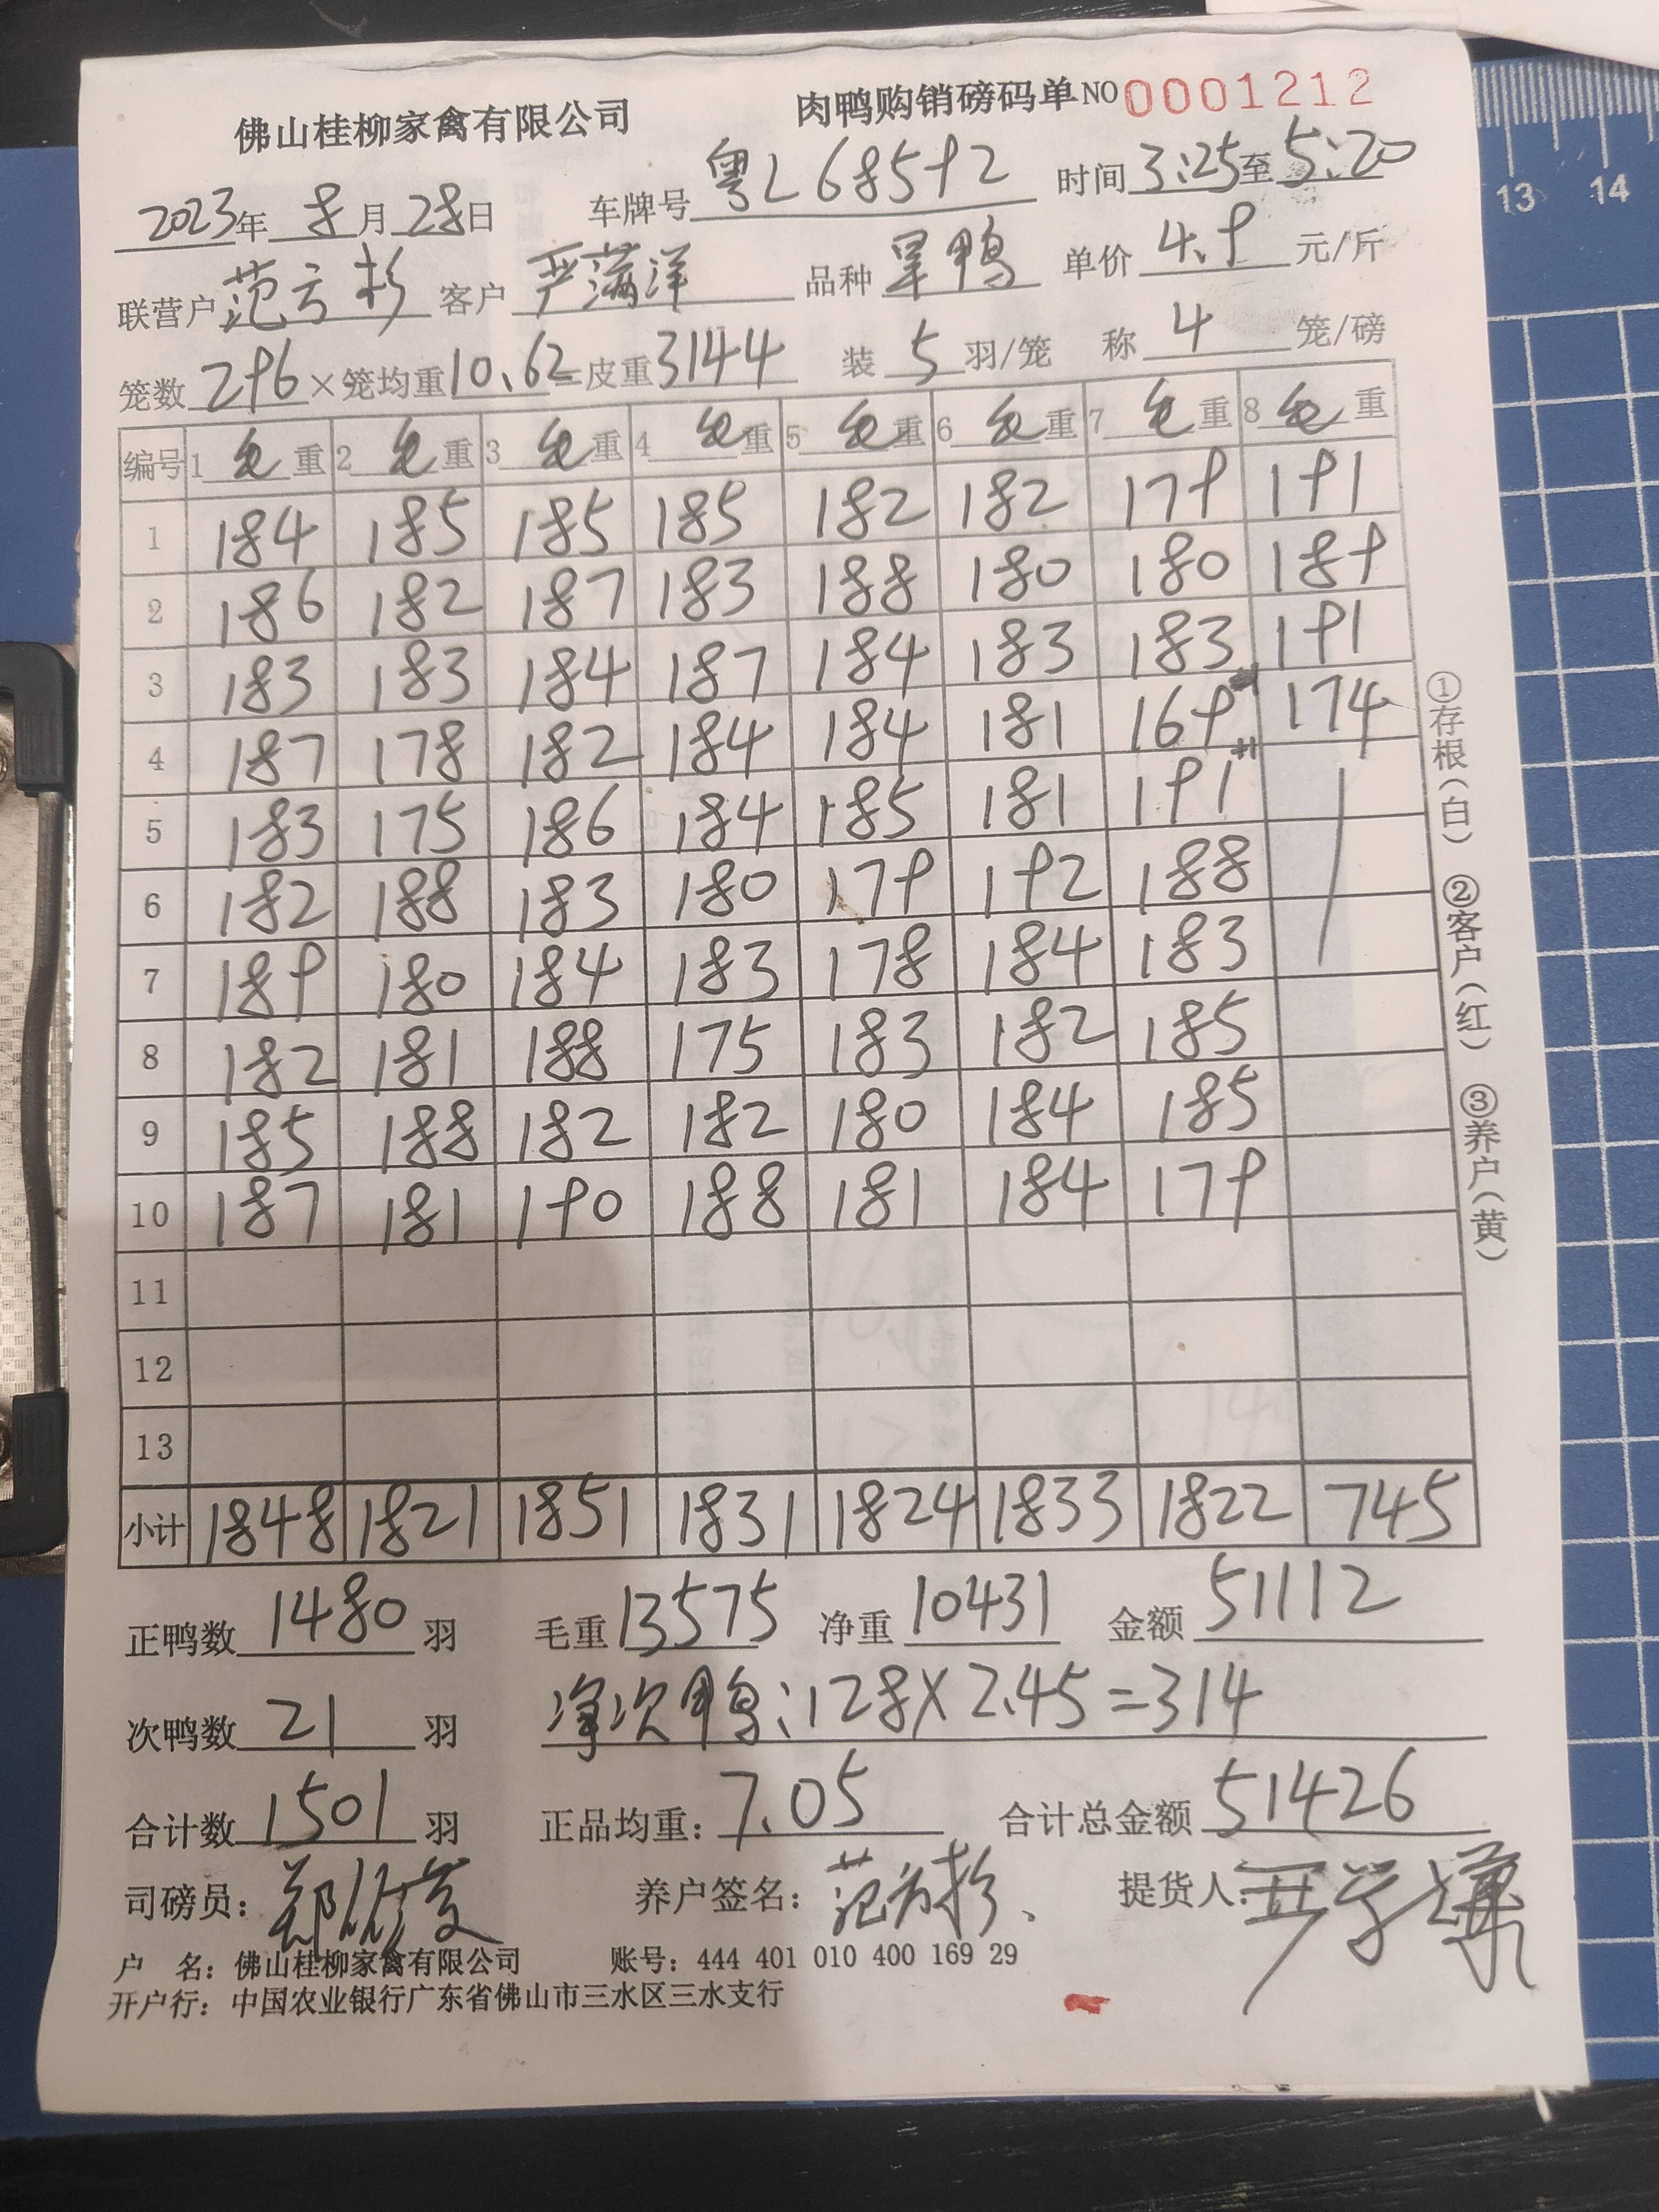 佛山桂柳家禽有限公司 肉鸭购销磅码单 NO 0001212
2023年 8月28日 车牌号 粤L68592 时间 3:25至5:20
联营户 范方杉 客户 严满洋 品种 旱鸭 单价 4.9 元/斤
笼数 296 ×笼均重 10.62 =皮重 3144 装 5 羽/笼 称 4 笼/磅
编号 1 毛重 2 毛重 3 毛重 4 毛重 5 毛重 6 毛重 7 毛重 8 毛重
1 184 185 185 185 182 182 179 191
2 186 182 187 183 188 180 180 189
3 183 183 184 187 184 183 183 191
4 187 178 182 184 184 181 169 174
5 183 175 186 184 185 181 191
6 182 188 183 180 179 192 188
7 189 180 184 183 178 184 183
8 182 181 188 175 183 182 185
9 185 188 182 182 180 184 185
10 187 181 190 188 181 184 179
11
12
13
小计 1848 1821 1851 1831 1824 1833 1822 745
正鸭数 1480 羽 毛重 13575 净重 10431 金额 51112
次鸭数 21 羽 净次鸭:128×2.45=314
合计数 1501 羽 正品均重: 7.05 合计总金额 51426
司磅员: 养户签名: 范方杉 提货人:
户 名: 佛山桂柳家禽有限公司 账号: 444 401 010 400 169 29
开户行: 中国农业银行广东省佛山市三水区三水支行
①存根(白) ②客户(红) ③养户(黄)
13 14